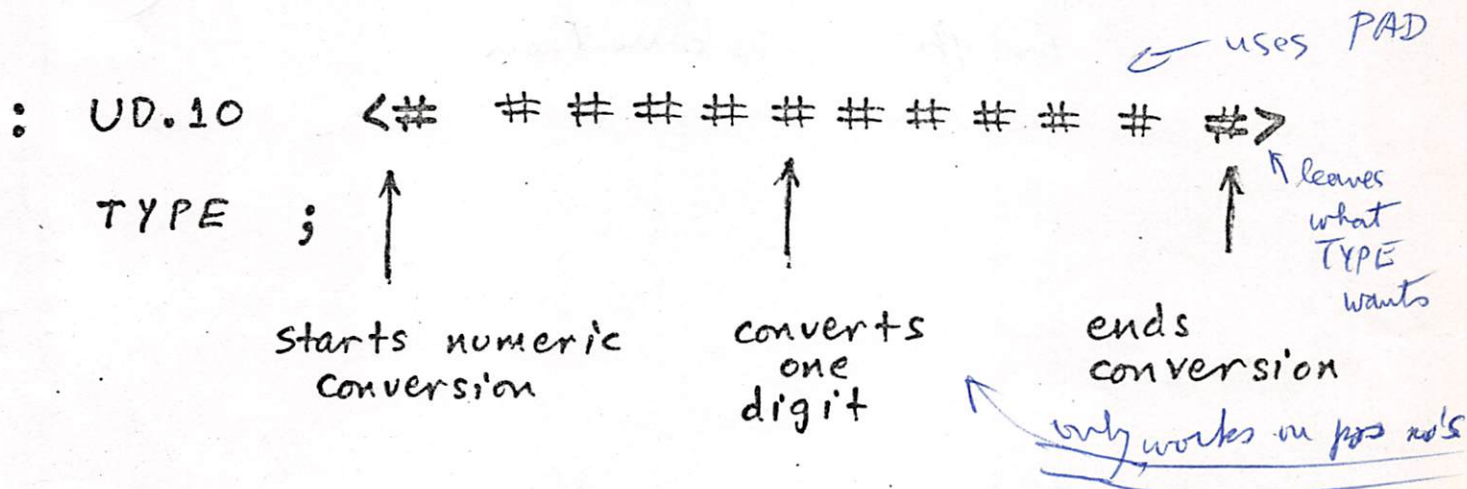 uses PAD
: UD.10 <# # # # # # # # # # # #>
TYPE ;
leaves
what
TYPE
wants
starts numeric
conversion
converts
one
digit
ends
conversion
only works on pos no's